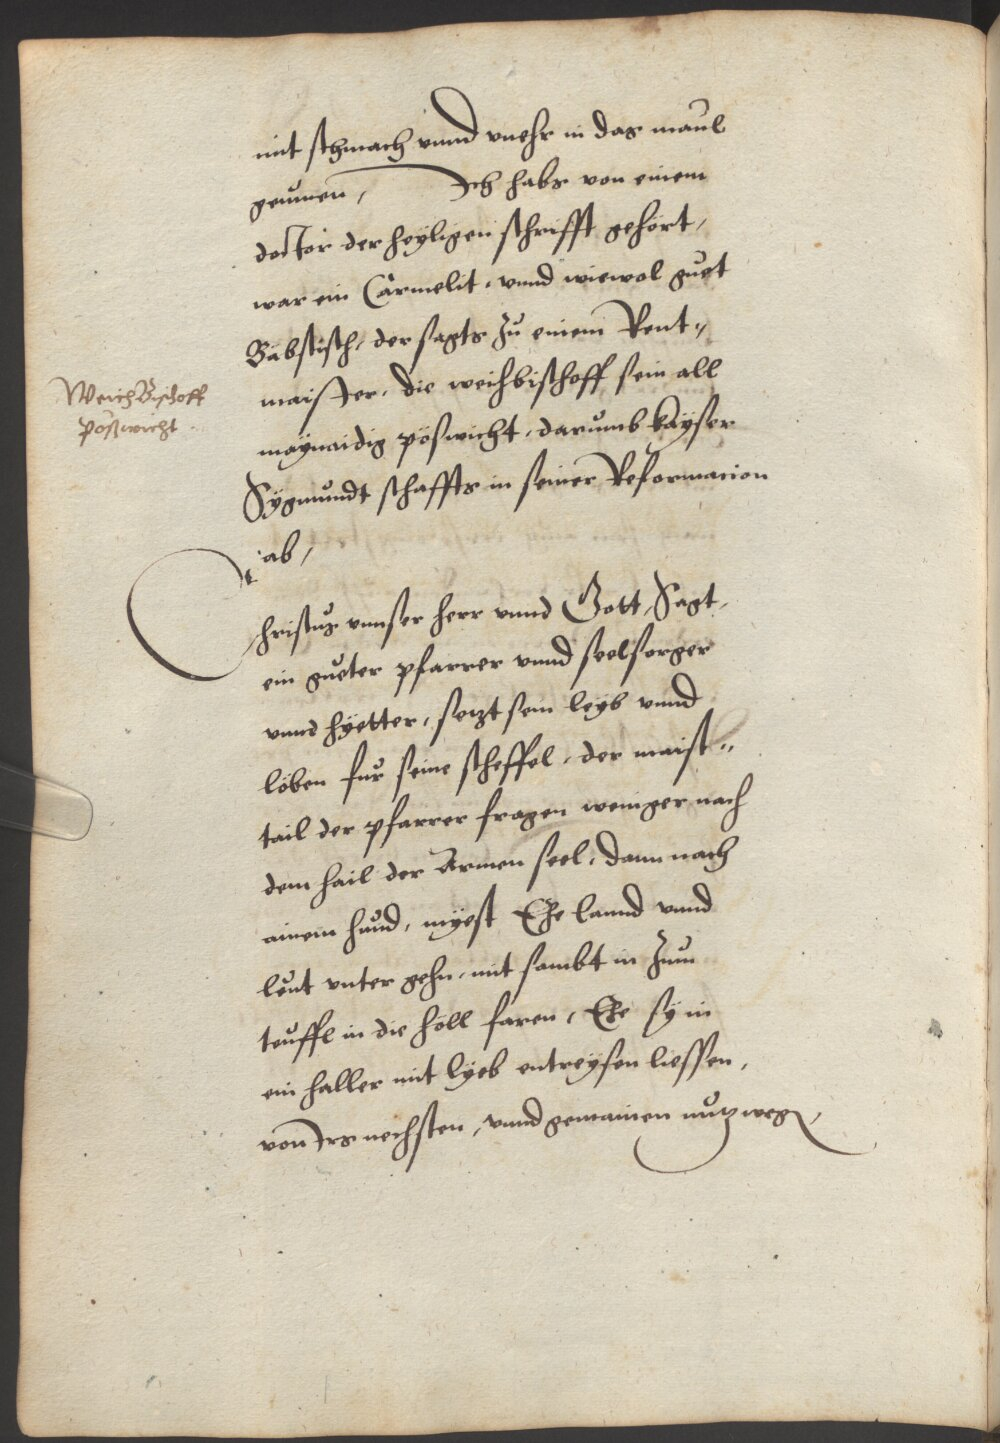 mit schmach vnnd vnehr in das maul
genumen, Ich habs von einem
doctor der heyligen schrifft gehört,
war ein Carmelit, vnnd wiewol guet
Bäbstisch, der sagts zu einem Rent„
maister, die weihbischoff sein all
Weich Bischoff
pößwicht
maynaidig pöswicht, darumb kayser
Sygmundt schaffts in seiner Reformacion
ab,
Christus vnnser herr vnnd Gott, Sagt,
ein gueter pfarrer vnnd seelsorger
vnnd hyetter, setzt sein leyb vnnd
löben fur seine scheffel, der maist„
tail der pfarrer fragen weniger nach
dem hail der Armen seel, dann nach
ainem hund, myest Ehe lannd vnnd
leut vnter gehn, mit sambt in zum
teuffl in die höll faren, Ehe sy in
ein haller mit lyeb entreysen liessen,
von Irs nechsten, vnnd gemainen nutz weg,